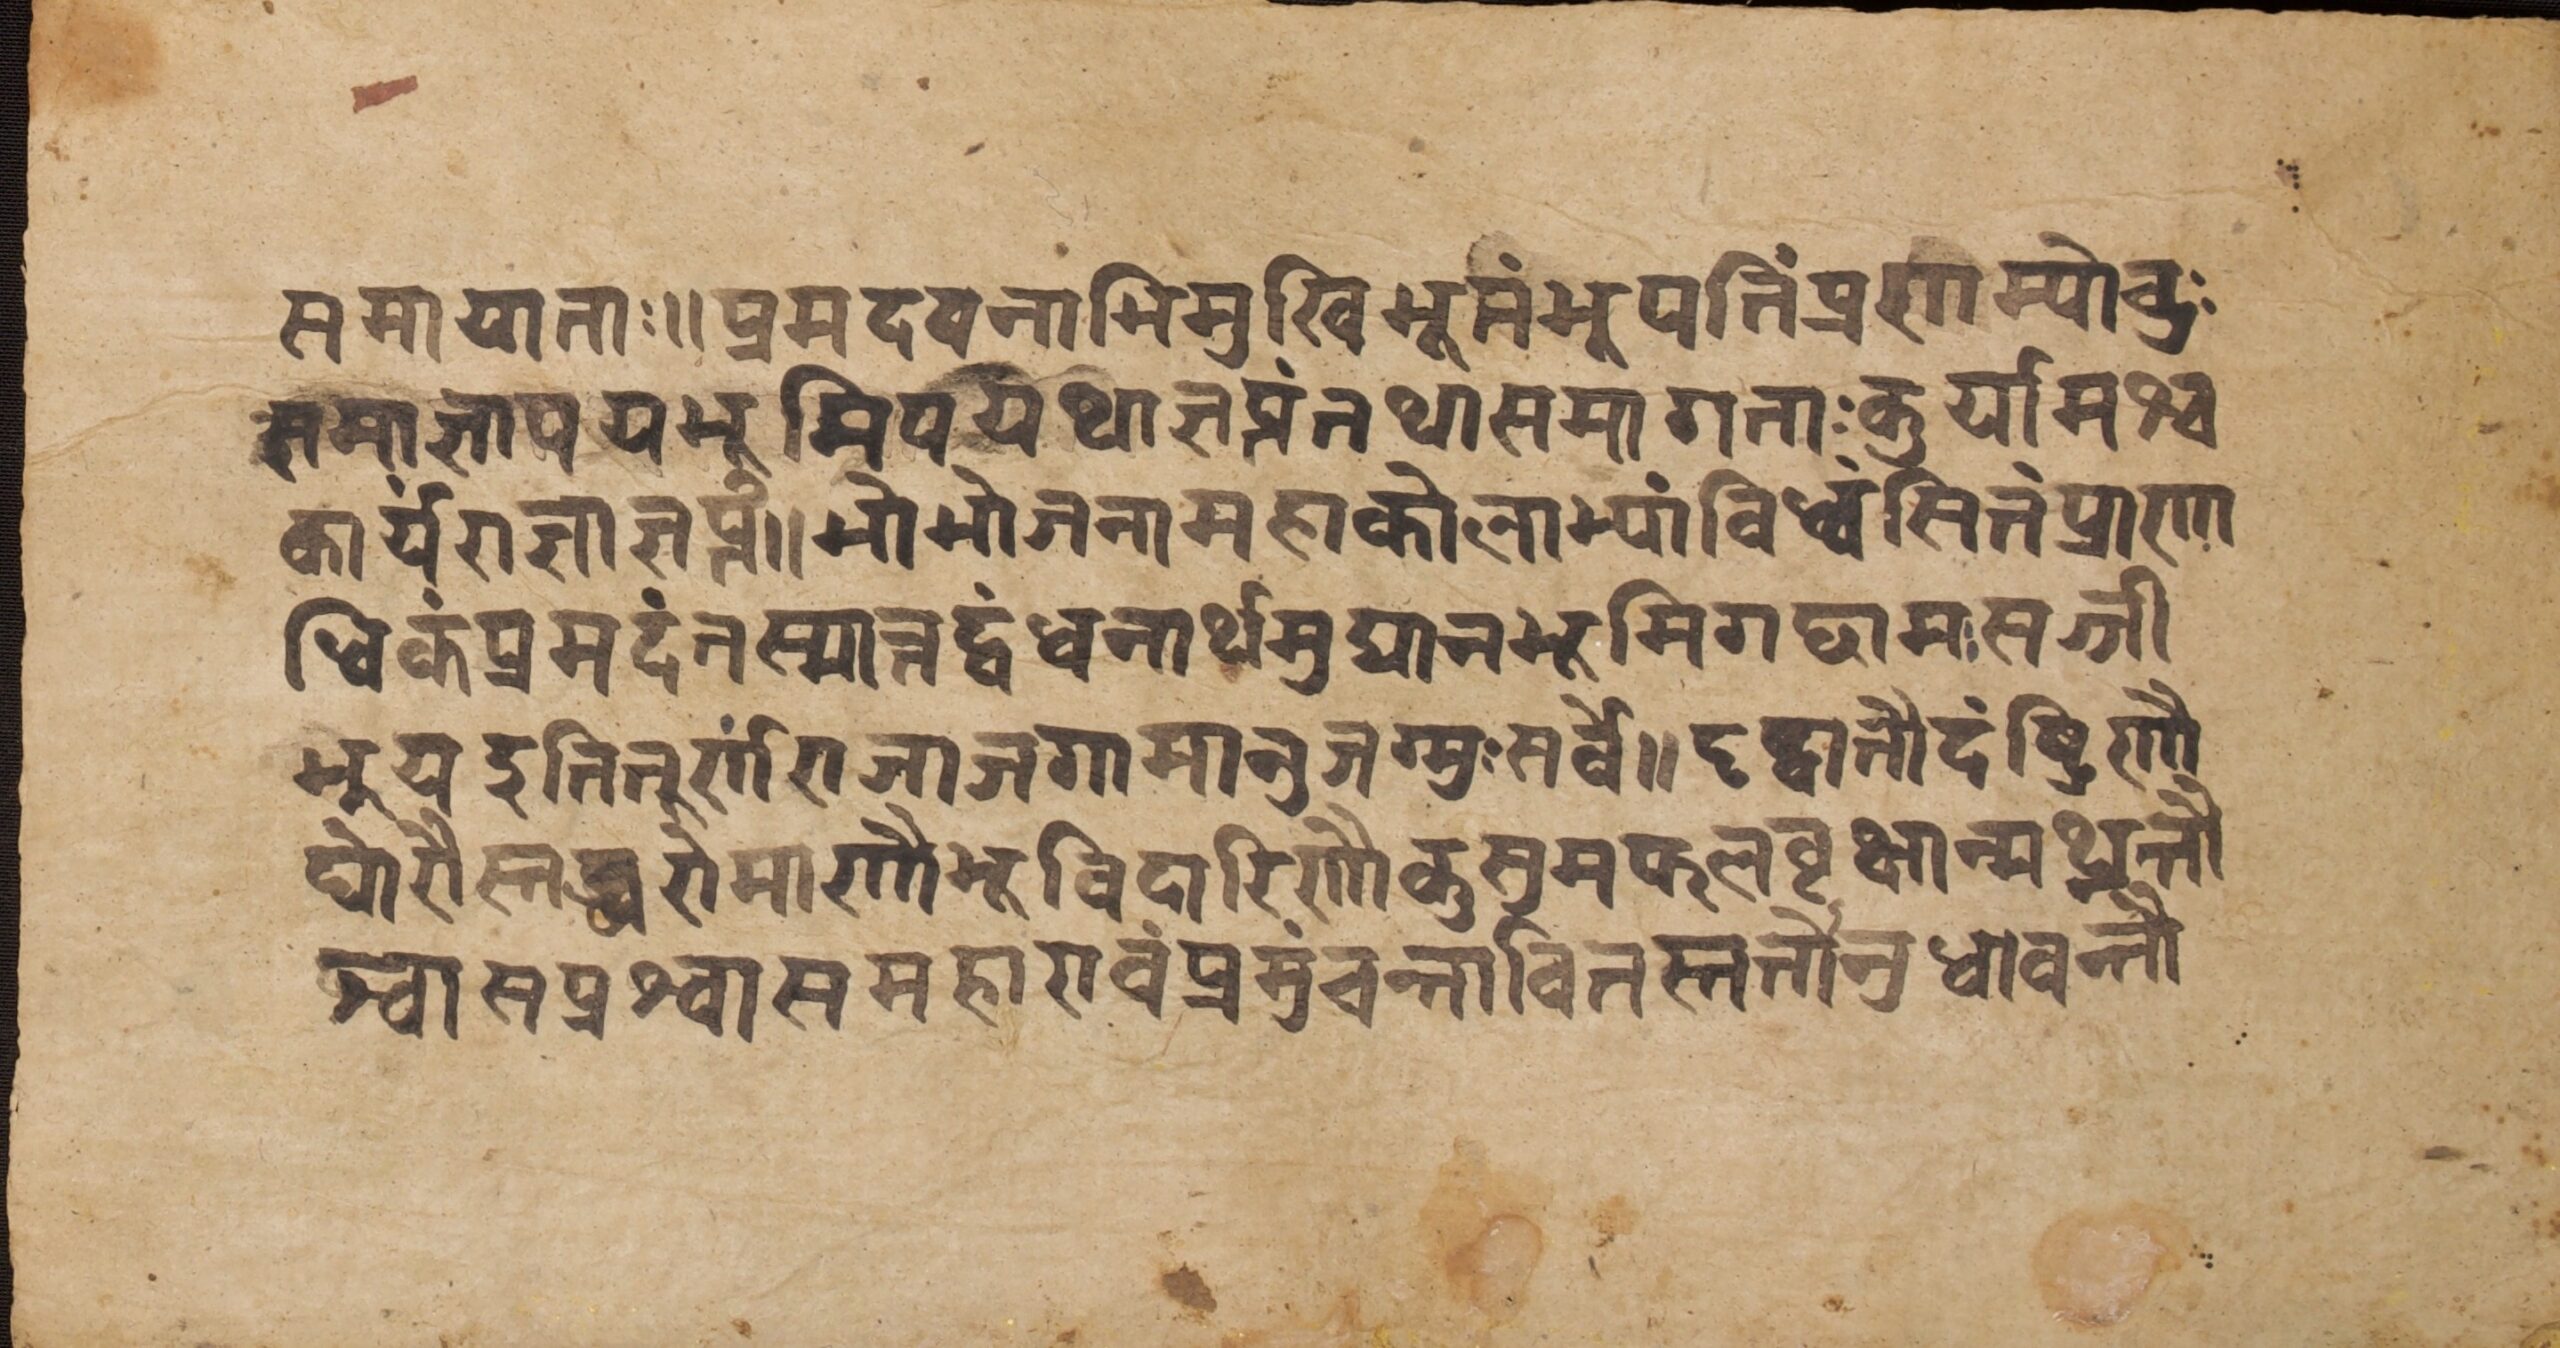 समायाताः॥प्रमदवनाभिमुखिभूतंभूपतिंप्रणम्योचुः
समाज्ञापयभूमिपयथाज्ञप्तंतथासमागताःकुर्यामश्च
कार्यंराज्ञाज्ञप्तं॥भोभोजनामहाकोलाभ्यांविध्वंसितंप्राणा
धिकंप्रमदंतस्मात्तद्वंधनार्थमुद्यानभूमिगछामःसज्जी
भूयइतितूर्णंराजाजगामानुजग्मुःसर्वे॥दृष्ट्वातौदंष्ट्रिणौ
घोरौस्तब्धरोमाणौभूविदारिणौकुसुमफलवृक्षान्मथ्नन्तौ
श्वासप्रश्वासमहारावंप्रमुंचन्तावितस्ततौनुधावन्तौ